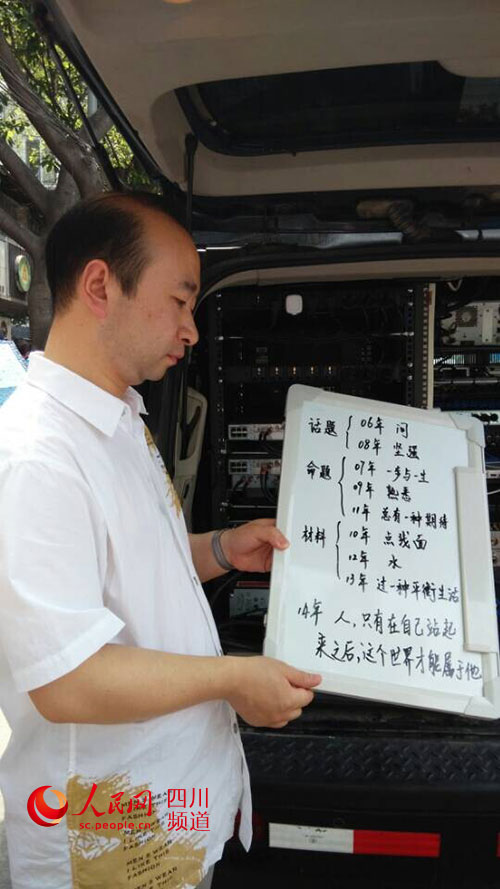 话题
06年 问
08年 坚强
命题
07年 一步与一生
09年 熟悉
11年 总有一种期待
材料
10年 点线面
12年 水
13年 过一种平衡生活
14年 人,只有在自己站起
来之后,这个世界才能属于他
人民网 四川
sc.people.cn 频道
MEN E WEAR
I LIKE THIS
FASHION